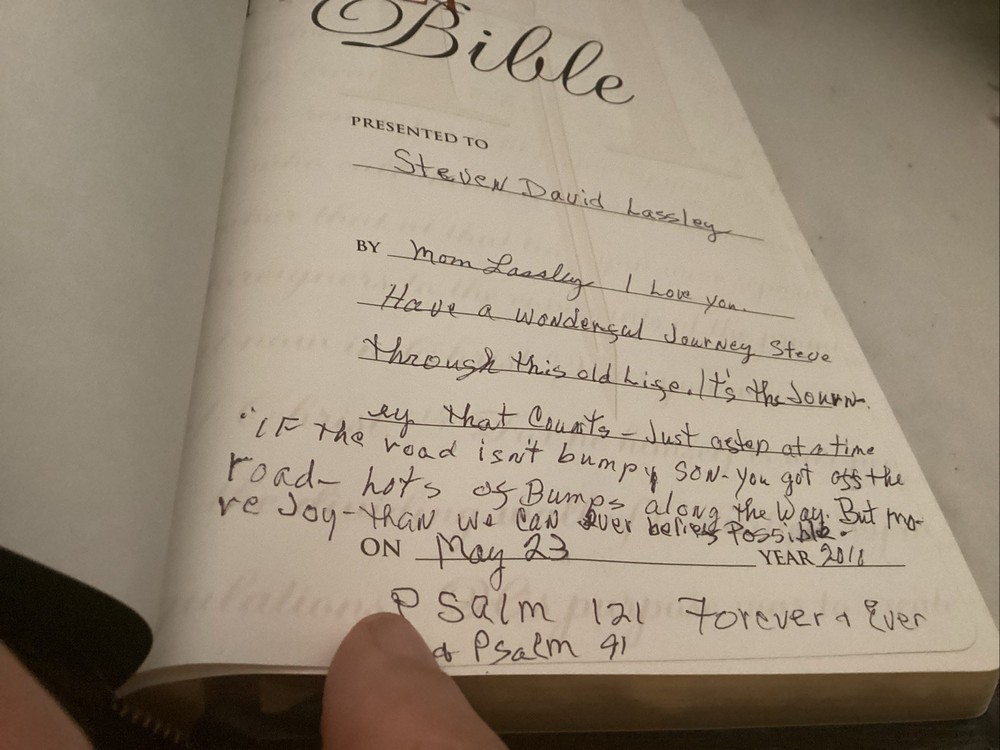 Bible
PRESENTED TO
Steven David Lassley
BY Mom Lassley I Love you.
Have a wonderful Journey Steve
through this old Life. It's the Journ-
ey that Counts - Just a step at a time
"If the road isn't bumpy SON - you got off the
road - hots of Bumps along the Way. But mo-
re Joy - than we can ever Possible.
ON May 23 YEAR
PSalm 121 Forever & Ever
& Psalm 91